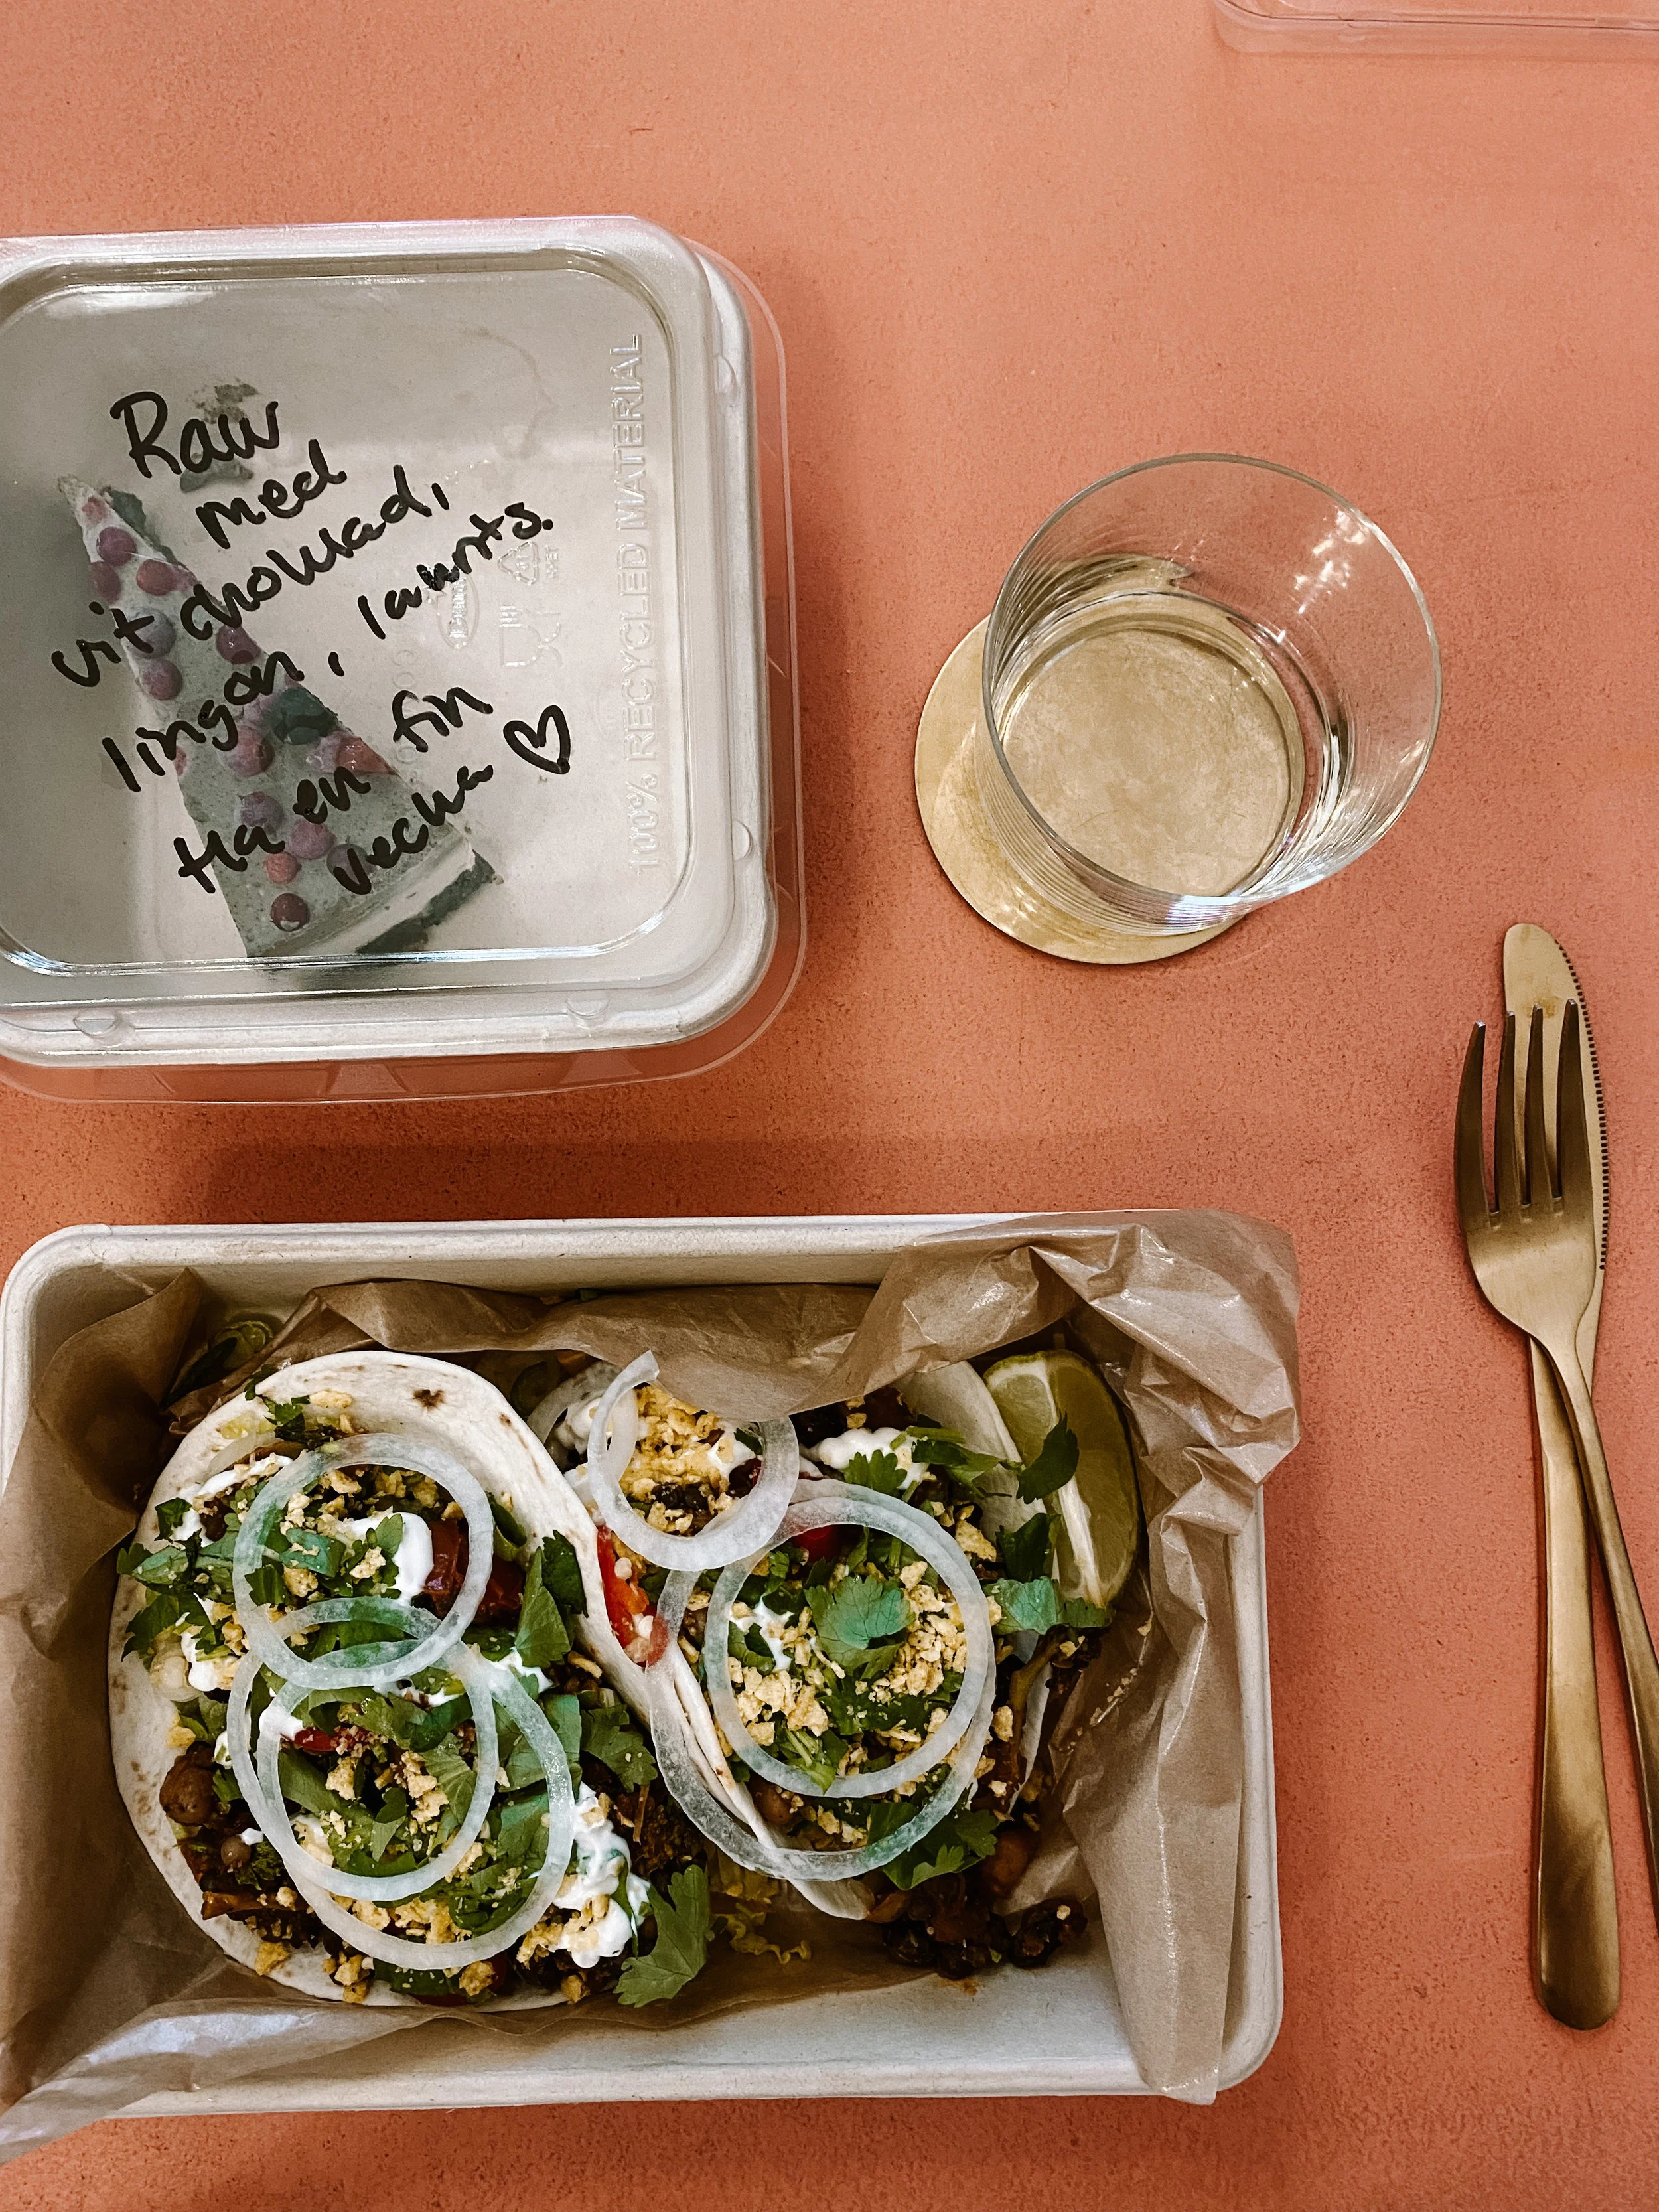 Raw
med
vit choklad,
lingon, lakrits.
Ha en fin
vecka ♡
100% RECYCLED MATERIAL